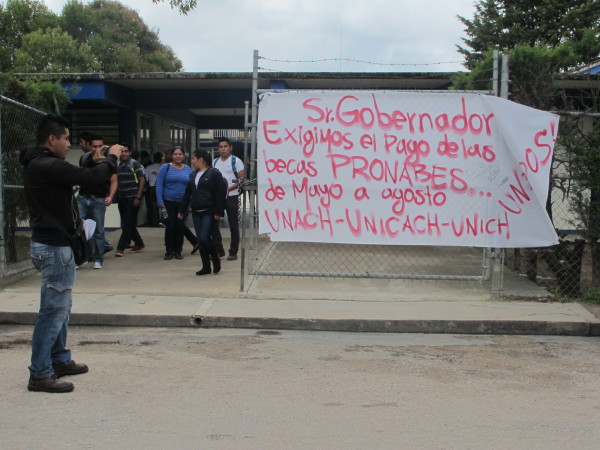 Sr. Gobernador
Exigimos el Pago de las
becas PRONABES...
de Mayo a agosto
UNACH-UNICACH-UNICH-UNIDOS!